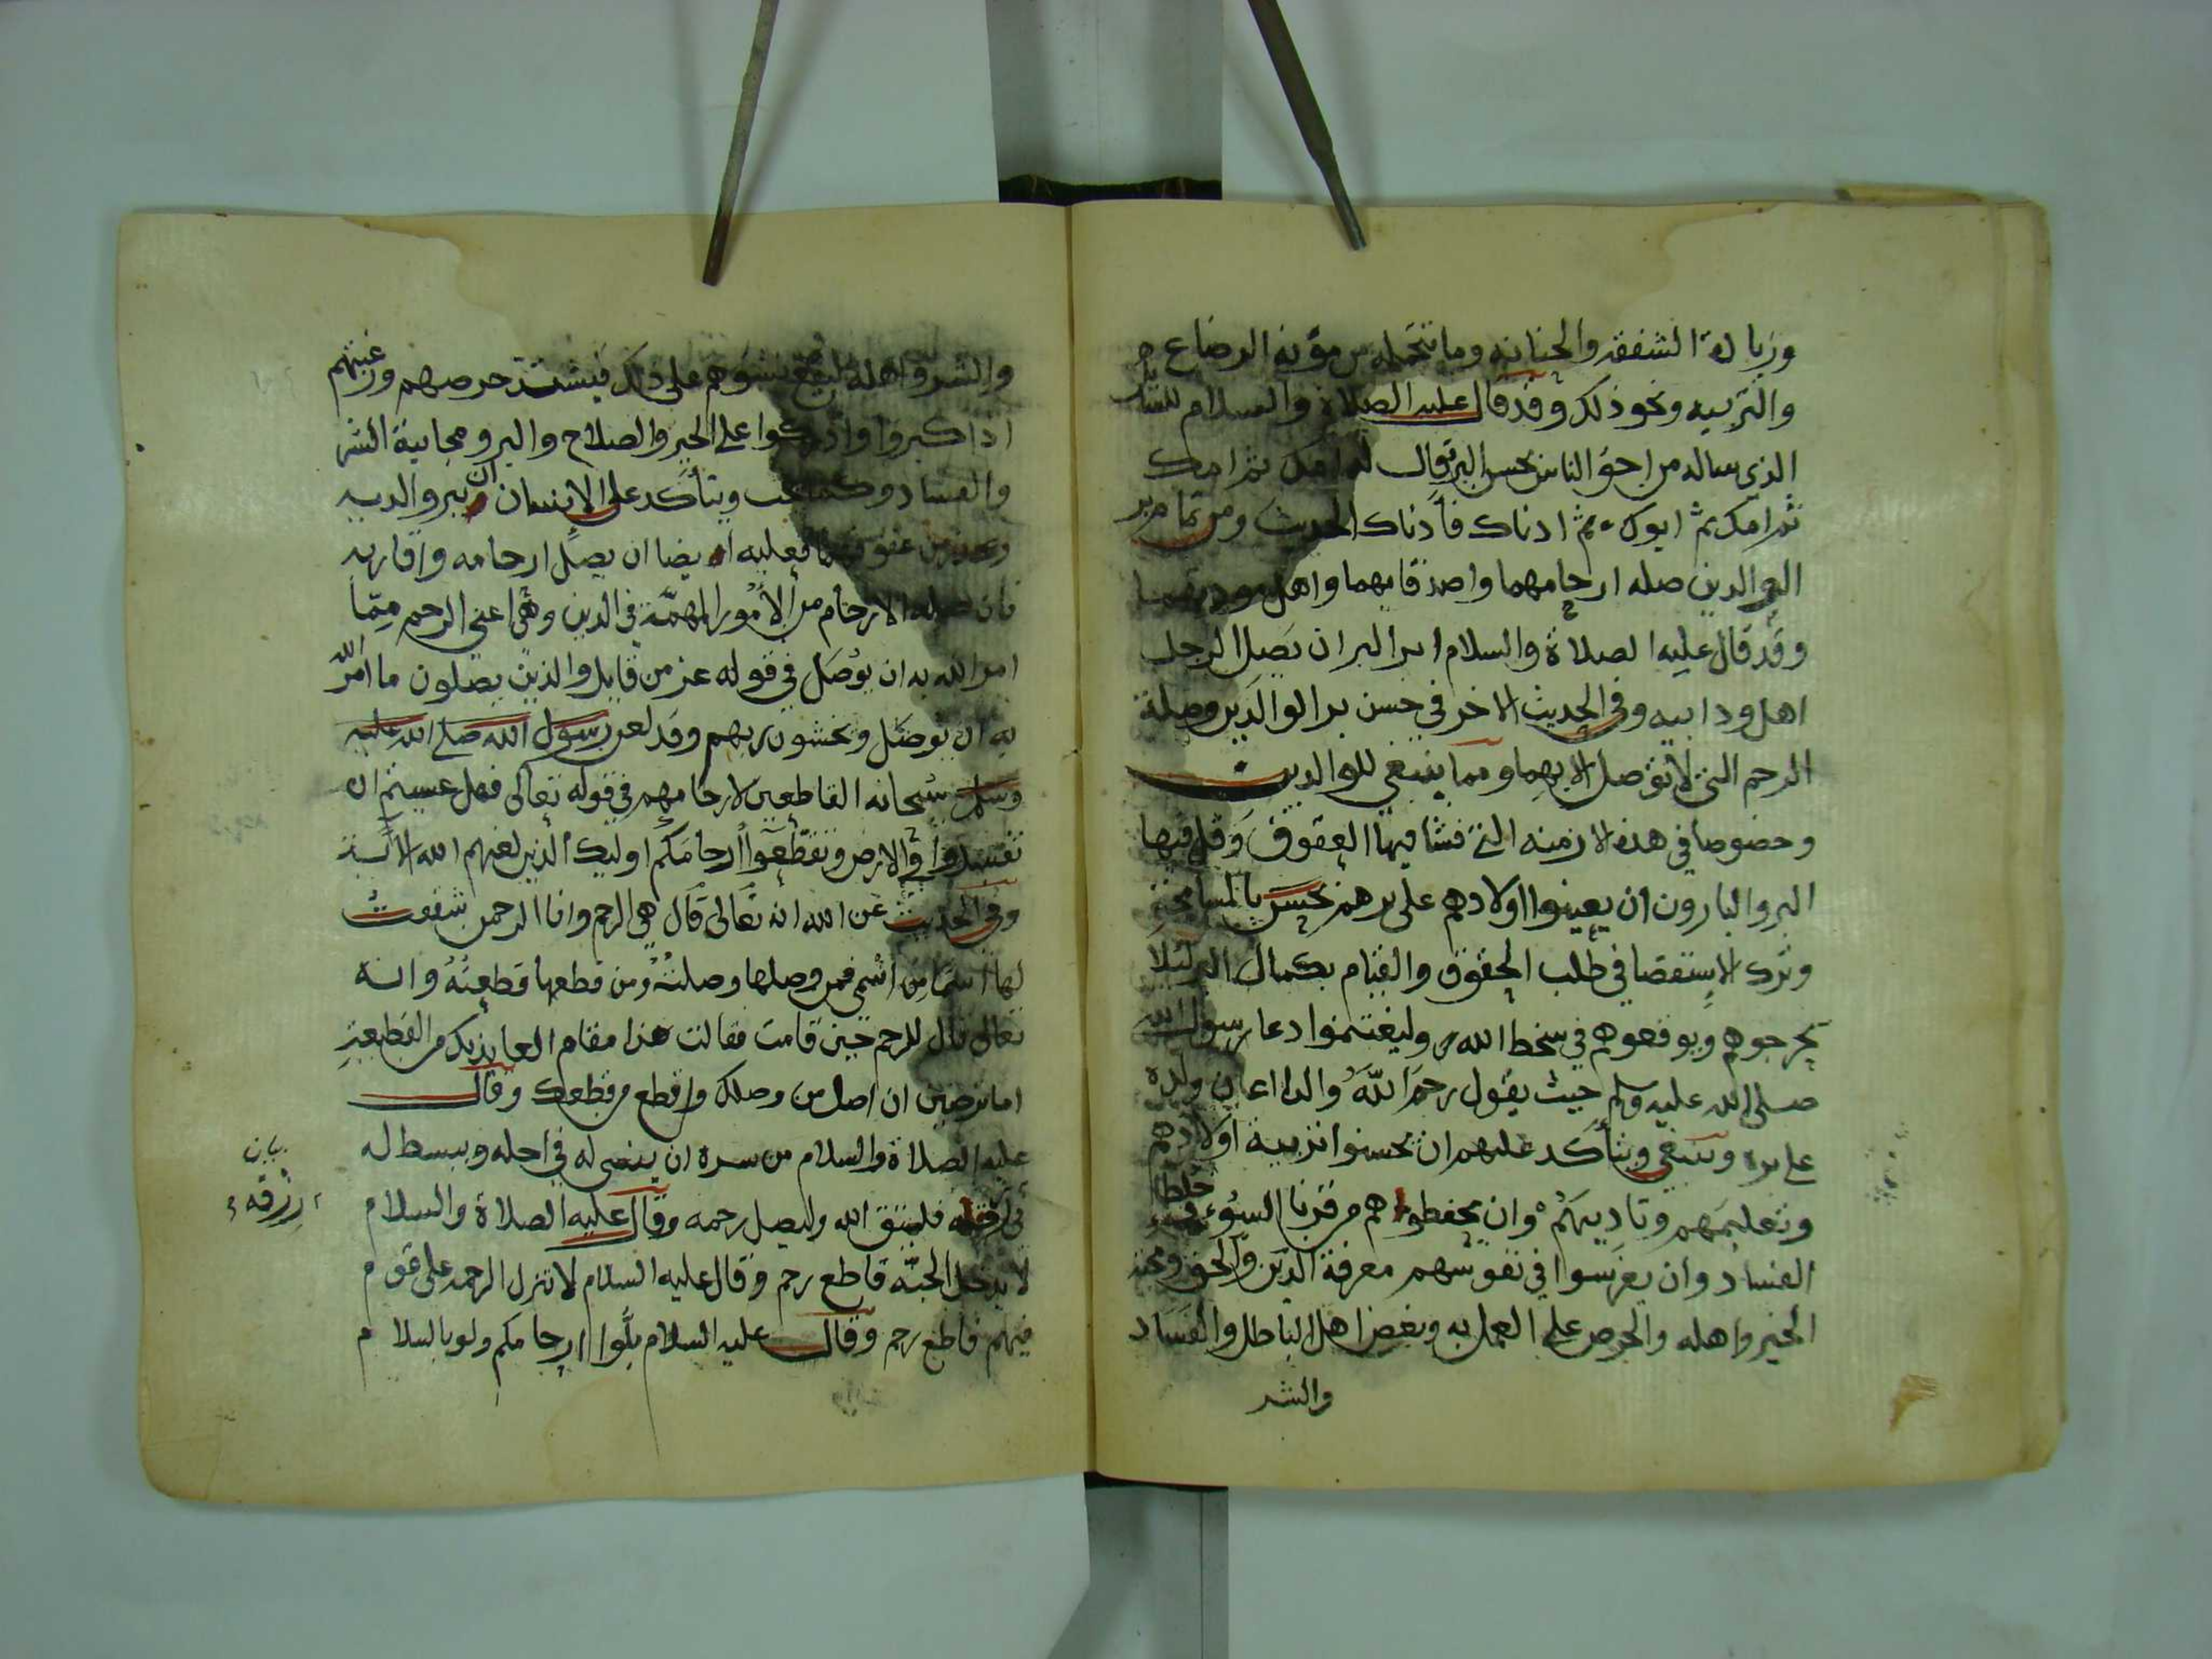 وزيادة الشفقه والحنانه وما تتحمله من مؤنه الرضاع
والتربيه ونحو ذلك وقد قال عليه الصلاة والسلام للسايل
الذي ساله من احق الناس بحسن البر قال له امك ثم امك
ثم امك ثم ابوك ثم ادناك فأدناك الحديث ومن تمام بر
الوالدين صله ارحامهما واصدقايهما واهل مودتهما
وقد قال عليه الصلاة والسلام ابر البر ان يصل الرجل
اهل ود ابيه وفي الحديث الاخر في حسن بر الوالدين وصلة
الرحم التي لا توصل الا بهما ومما ينبغي للوالدين
وخصوصا في هذه الازمنه التي فشا فيها العقوق وقل فيها
البر والبارون ان يعينوا اولادهم على برهم بحسن بالمسامحة
وترك الاستقصا في طلب الحقوق والقيام بكمال البر لئلا
يحرجوهم ويوقعوهم في سخط الله وليغتنموا دعا رسول الله
صلى الله عليه وسلم حيث يقول رحم الله والدا اعان ولده
على بره وينبغي ويتأكد عليهم ان يحسنوا تربية اولادهم
وتعليمهم وتاديبهم وان يحفظوهم من قرنا السوء وخلطا
الفساد وان يغرسوا في نفوسهم معرفة الدين والحق ومحبة
الخير واهله والحرص على العمل به وبغض اهل الباطل والفساد
والشر
والشر واهله ليقع نشوهم على ذلك فيشتد حرصهم ورغبتهم
اذا كبروا وادركوا على الخير والصلاح والبر ومجانبة الشر
والفساد وكما يجب ويتأكد على الانسان ان يبر والديه
ويحذر من عقوقهما فعليه ايضا ان يصل ارحامه واقاربه
فان صلة الارحام من الأمور المهمّة في الدين وهي اعني الرحم ممّا
امر الله به ان يوصل في قوله عز من قايل والذين يصلون ما امر الله
به ان يوصل ويخشون ربهم وقد لعن رسول الله صلى الله عليه
وسلم سبحانه القاطعين لارحامهم في قوله تعالى فهل عسيتم ان
تفسدوا في الارض وتقطّعوا أرحامكم اوليك الذين لعنهم الله الآية
وفي الحديث عن الله انه تعالى قال هي الرحم وانا الرحمن شققت
لها اسما من اسمي فمن وصلها وصلته ومن قطعها قطعته وانه
تعالى قال للرحم حين قامت فقالت هذا مقام العايذ بك من القطيعة
اما ترضين ان اصل من وصلك واقطع من قطعك وقال
عليه الصلاة والسلام من سره ان ينسى له في اجله ويبسط له
في رزقه فليتق الله وليصل رحمه وقال عليه الصلاة والسلام
لا يدخل الجنّه قاطع رحم وقال عليه السلام لا تنزل الرحمه على قوم
فيهم قاطع رحم وقال عليه السلام بلّوا ارحامكم ولو بالسلام
بيان
رزقه